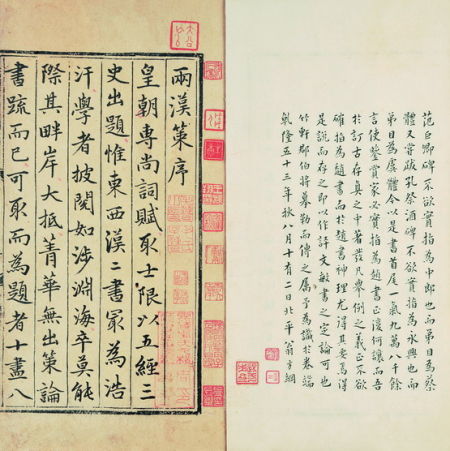 范巨卿碑不欲實指為中郎也而第目為蔡
體又嘗跋孔祭酒碑不欲實指為永興也而
第目為虞體今以是書首尾一氣九萬八千餘
言使鑒賞家必實指為趙書正復何讓而吾
於訂古存真之中著發凡舉例之義正不欲
確指為趙書而於趙書神理尤得其妥焉得
是說而存之即以作許文敏書之定論可也
竹軒郡伯將摹勒而傳之屬予為識於卷端
乾隆五十三年秋八月十有二日北平翁方綱
兩漢策序
皇朝專尚詞賦取士限以五經三
史出題惟東西漢二書冣為浩
汗學者披閱如涉淵海卒莫能
際其畔岸大抵菁華無出策論
書疏而已可取而為題者十盡八